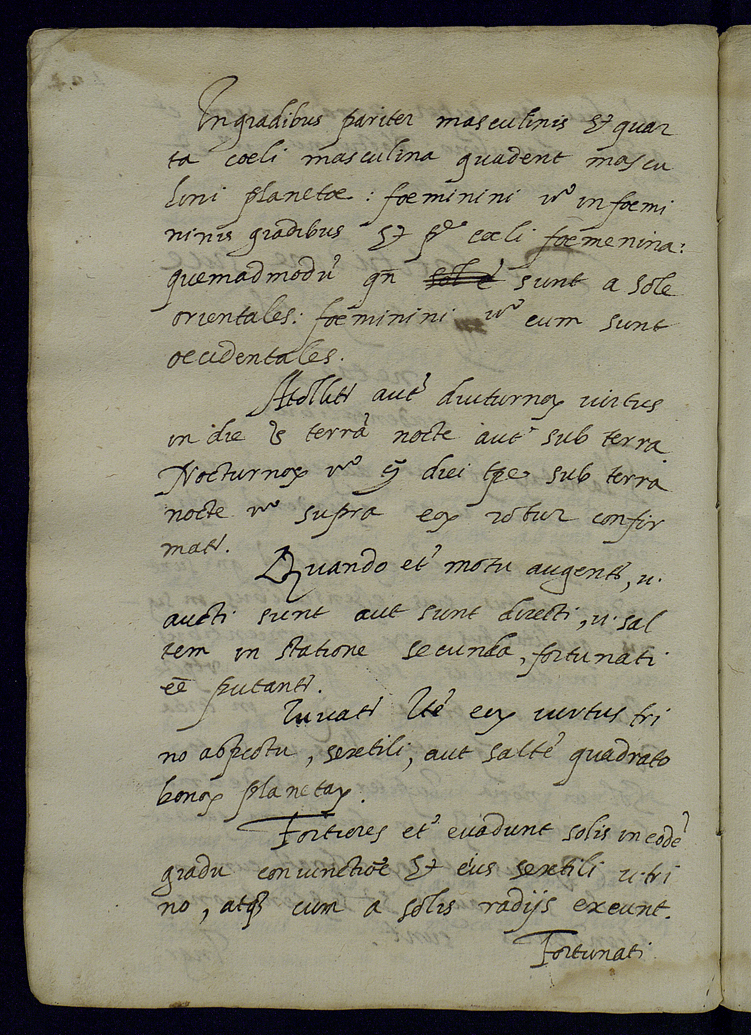 In gradibus pariter masculinis et quar
ta coeli masculina gaudent mascu
lini planetae: foeminini v.º in foemi
ninis gradibus et coeli foemenina:
quemadmodũ qñ sol e sunt a sole
orientales: foeminini v.º cum sunt
occidentales.
Attollit.r aut. diuturnoꝝ virtus
in die terrã nocte aut. sub terra
Nocturnoꝝ v.º diei tꝑe sub terra
nocte v.º supra eoꝝ confir
mat.r.
Quando et. motu augent.r, u.
aucti sunt aut sunt directi, u. sal
tem in statione secunda, fortunati
eẽ putant.r.
Iuuat.r Itẽ eoꝝ virtus tri
no aspectu, sextili, aut saltẽ quadrato
bonoꝝ planetaꝝ.
Fortiores et. euadunt solis in eodẽ
gradu coniunctioẽ et eius sextili u. tri
no, atqꝫ cum a solis radijs exeunt.
Fortunati